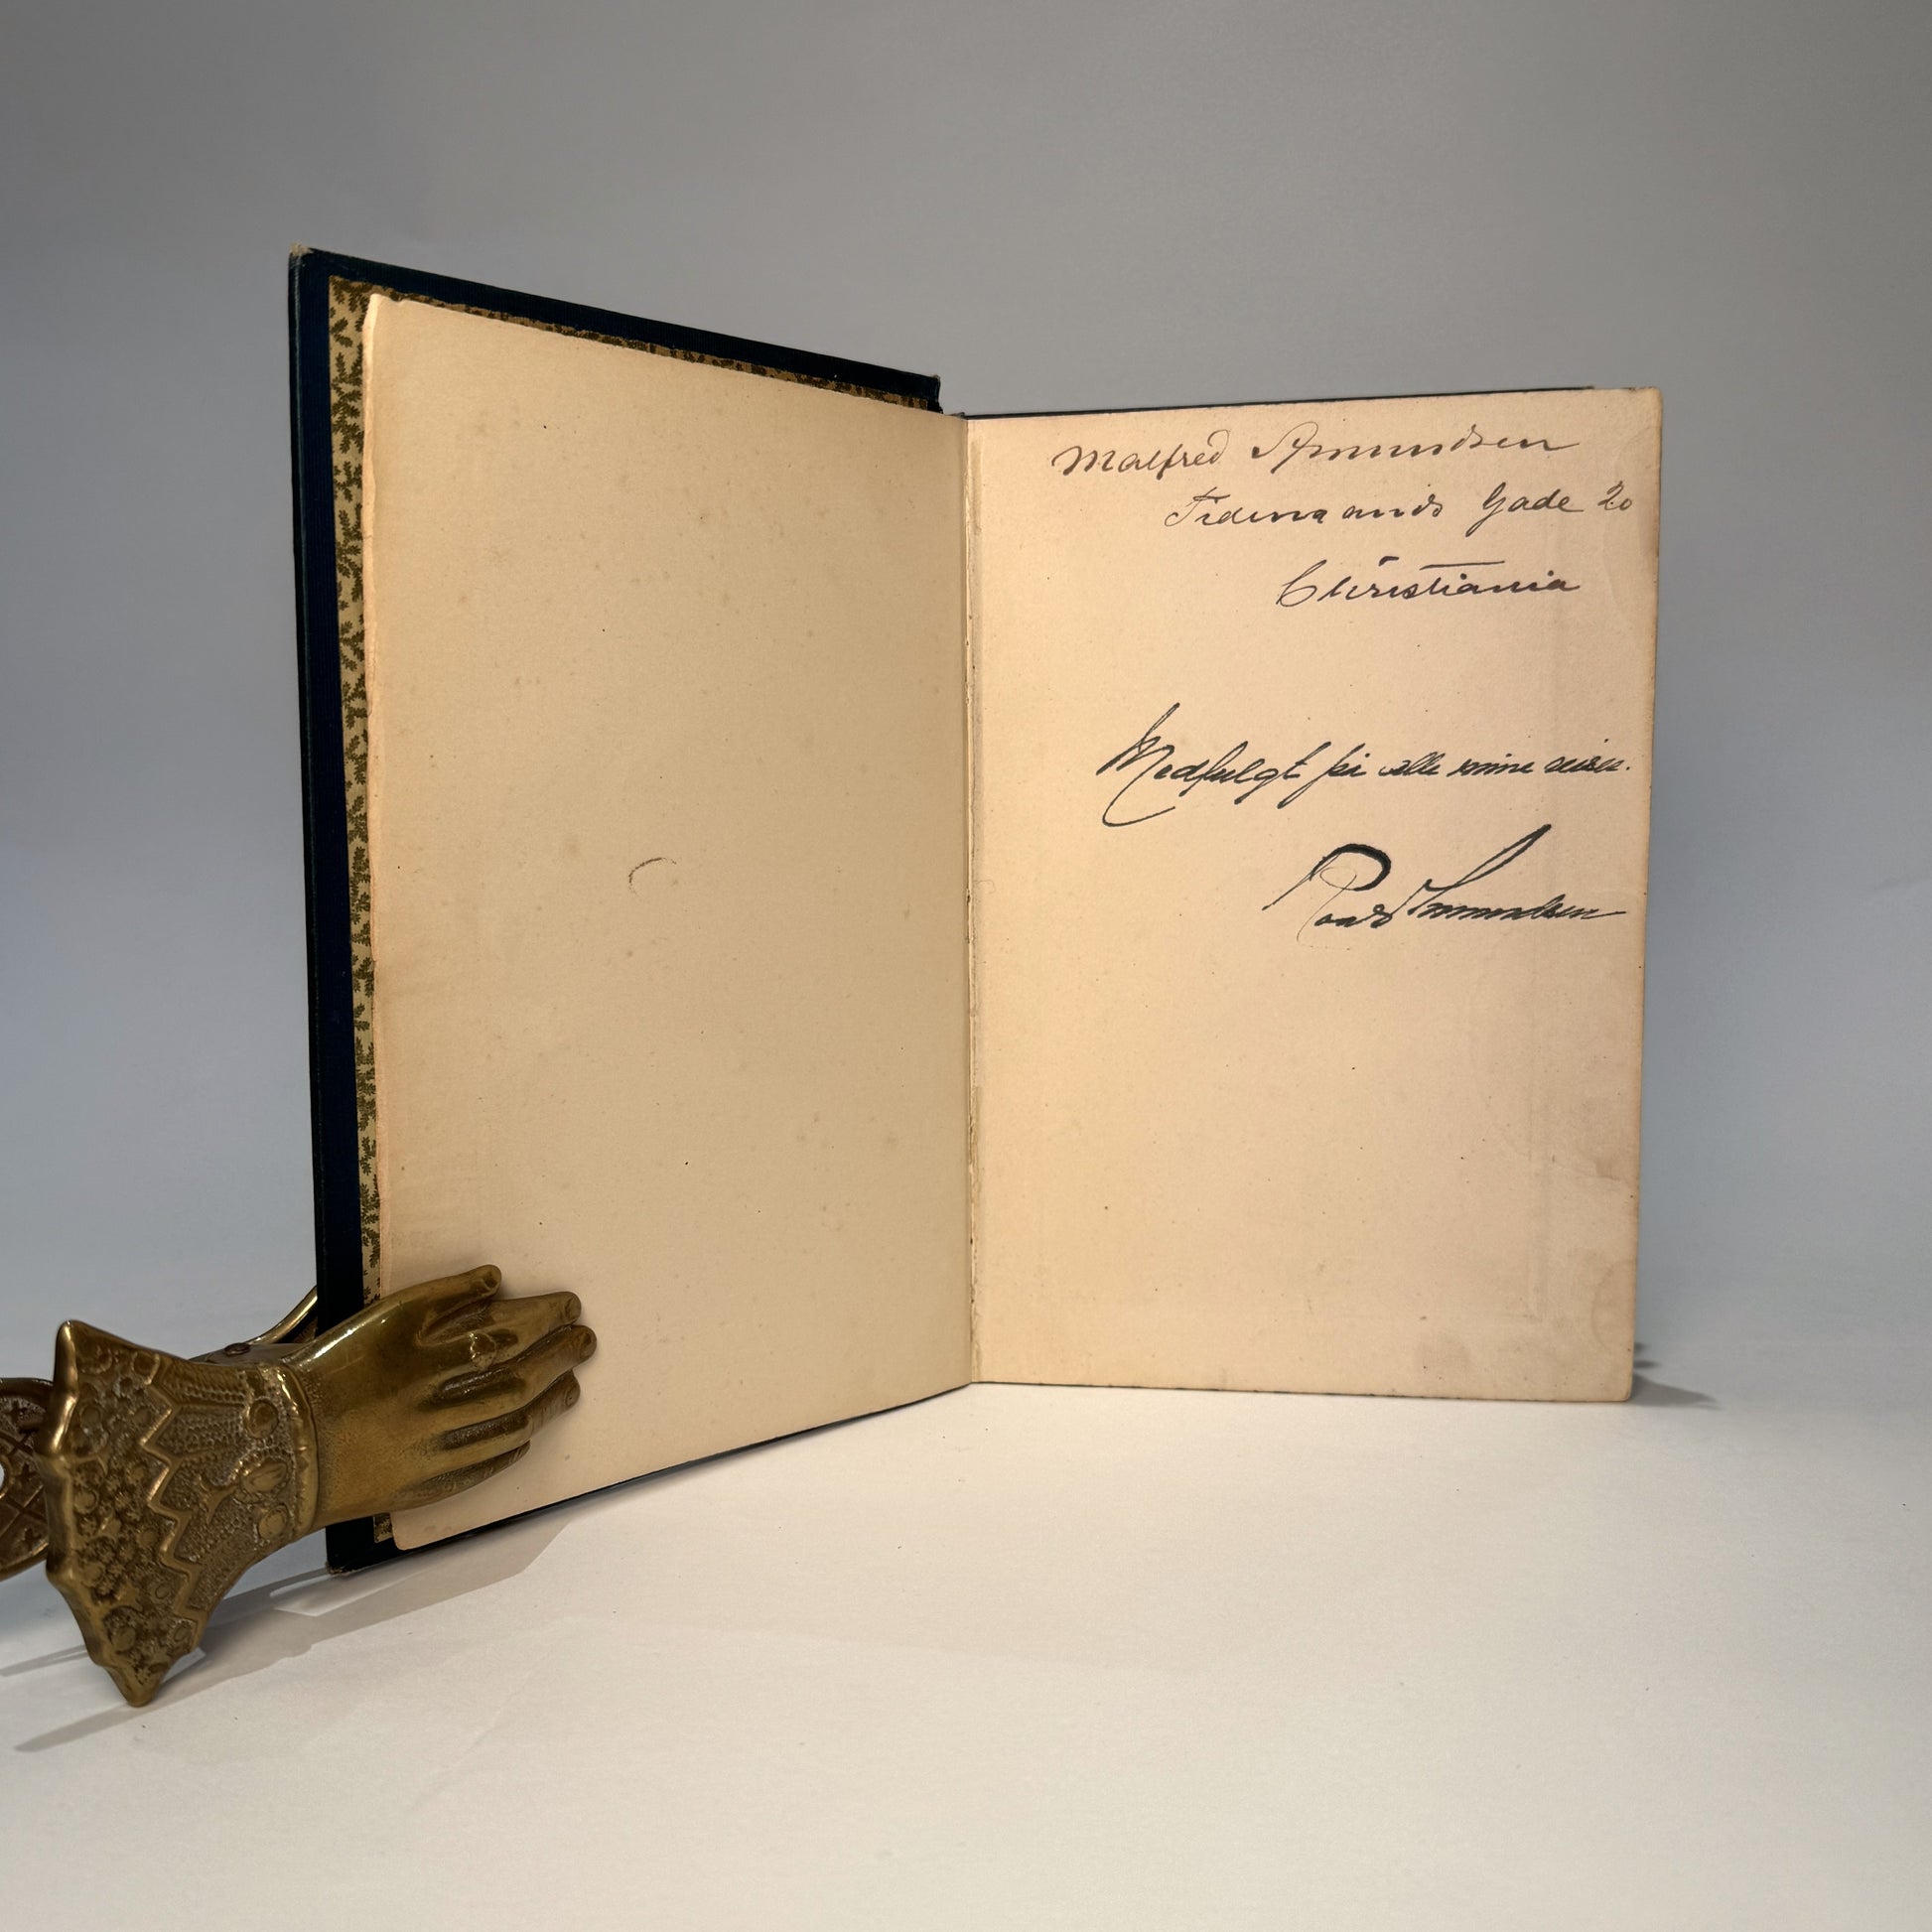 Malfred Amundsen
Tidemands Gade 20
Christiania
Medfulgt på alle mine reiser.
Roald Amundsen